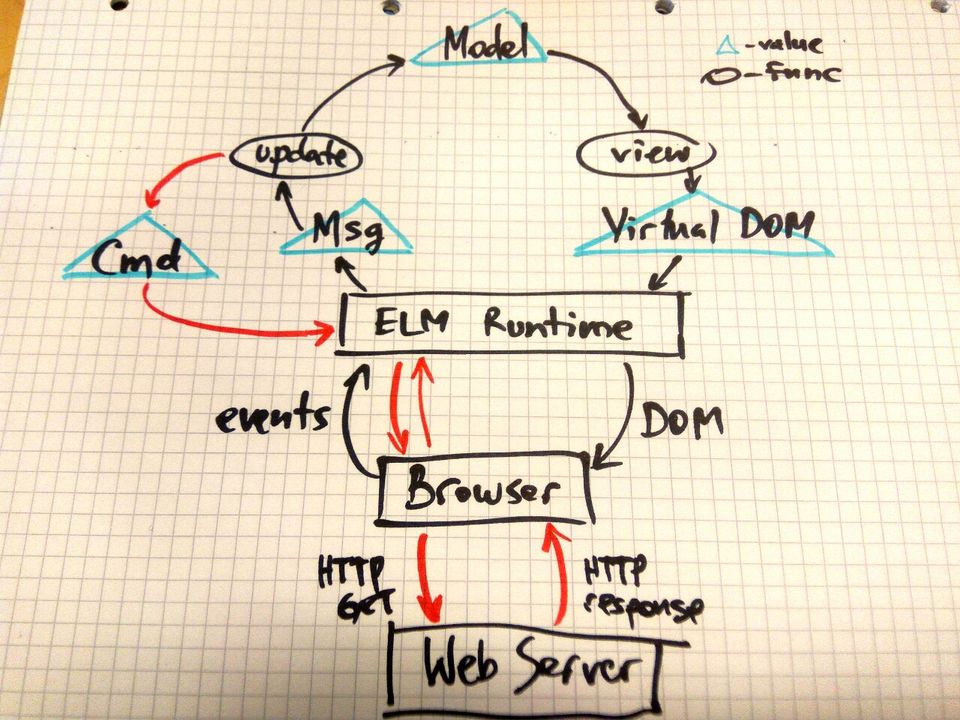 Model
△-value
⬭-Func
update
view
Cmd
Msg
Virtual DOM
ELM Runtime
events
DOM
Browser
HTTP
GET
HTTP
response
Web Server